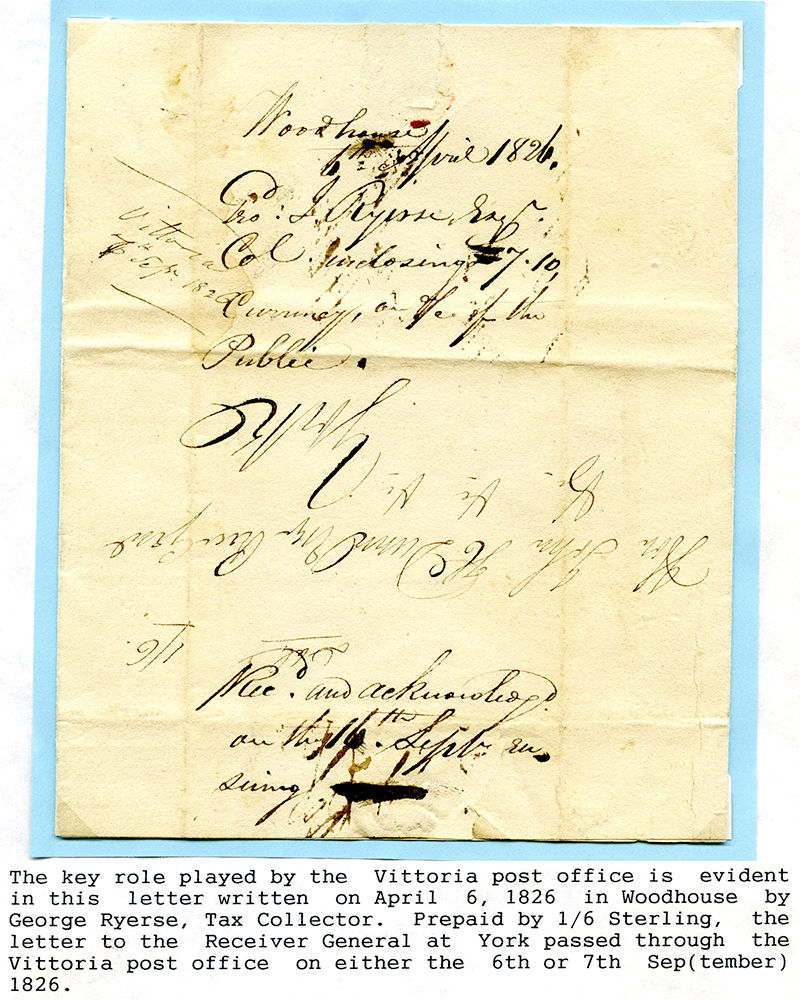 Woodhouse
6th April 1826.
Geo: J. Ryerse Esqr.
Col. inclosing £7.10,
Currency, on of the
Public.
Vittoria
7th Sepr. 1826
York
Hon John H Dunn
1/6
Recd. and acknowledged
on the 16th. Septr. en
suing
The key role played by the Vittoria post office is evident
in this letter written on April 6, 1826 in Woodhouse by
George Ryerse, Tax Collector. Prepaid by 1/6 Sterling, the
letter to the Receiver General at York passed through the
Vittoria post office on either the 6th or 7th Sep(tember)
1826.